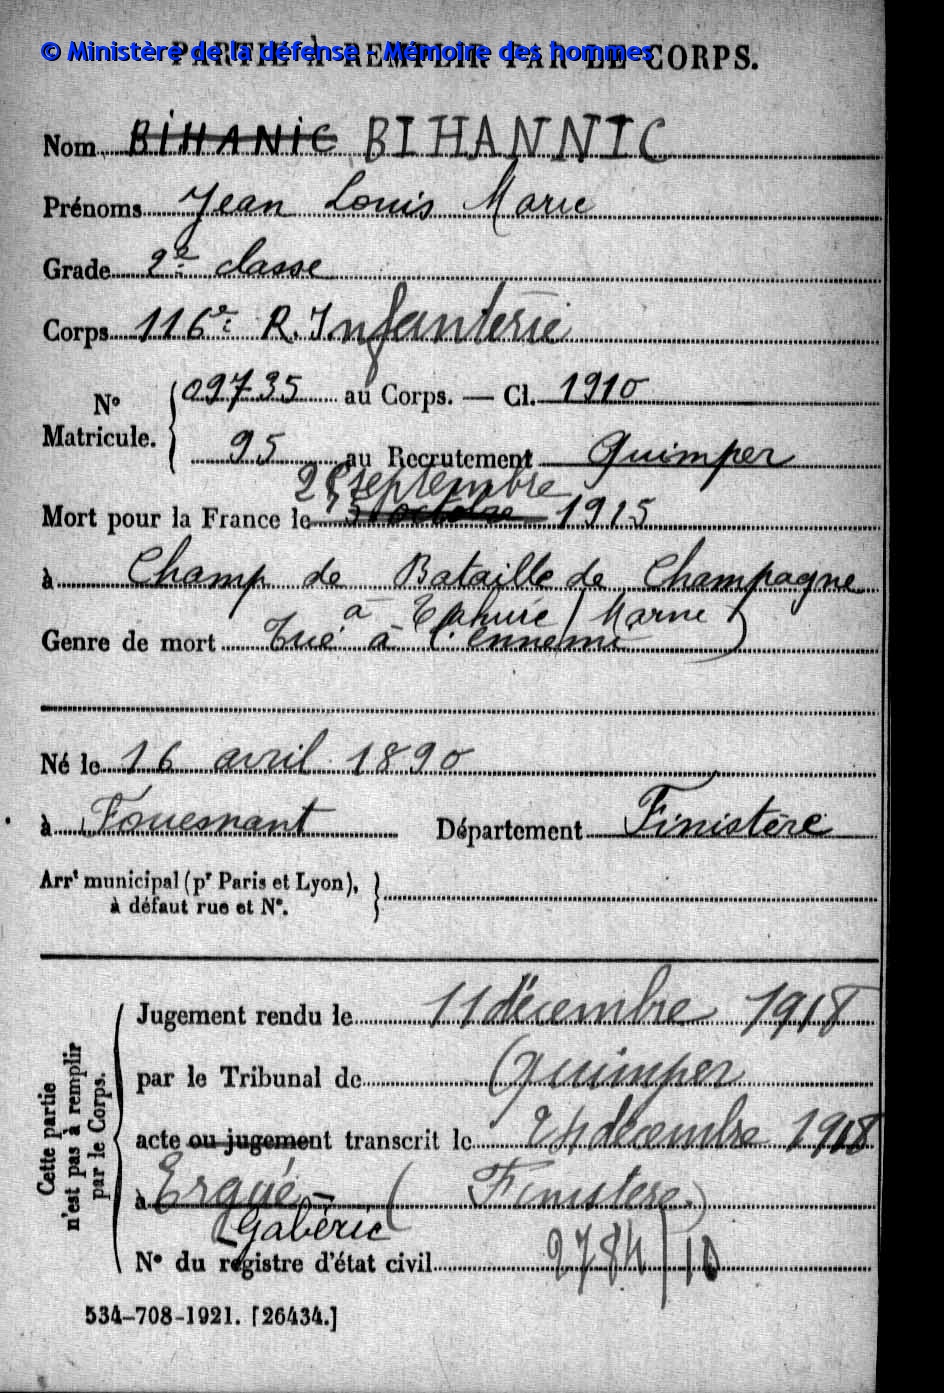 © Ministère de la défense - Mémoire des hommes
PARTIE À REMPLIR PAR LE CORPS.
Nom BIHANIC BIHANNIC
Prénoms Jean Louis Marie
Grade 2e classe
Corps 116e R. Infanterie
No Matricule. 09735 au Corps. — Cl. 1910
95 au Recrutement Quimper
septembre
Mort pour la France le 5 octobre 1915
à Champ de Bataille de Champagne
à Tahure (Marne)
Genre de mort Tué à l'ennemi
Né le 16 avril 1890
à Fouesnant Département Finistère
Arrt municipal (pr Paris et Lyon),
à défaut rue et No.
Cette partie
n'est pas à remplir
par le Corps.
Jugement rendu le 11 décembre 1918
par le Tribunal de Quimper
acte ou jugement transcrit le 24 décembre 1918
à Ergué- (Finistère)
-Gabéric
No du registre d'état civil 2784/10
534-708-1921. [26434.]